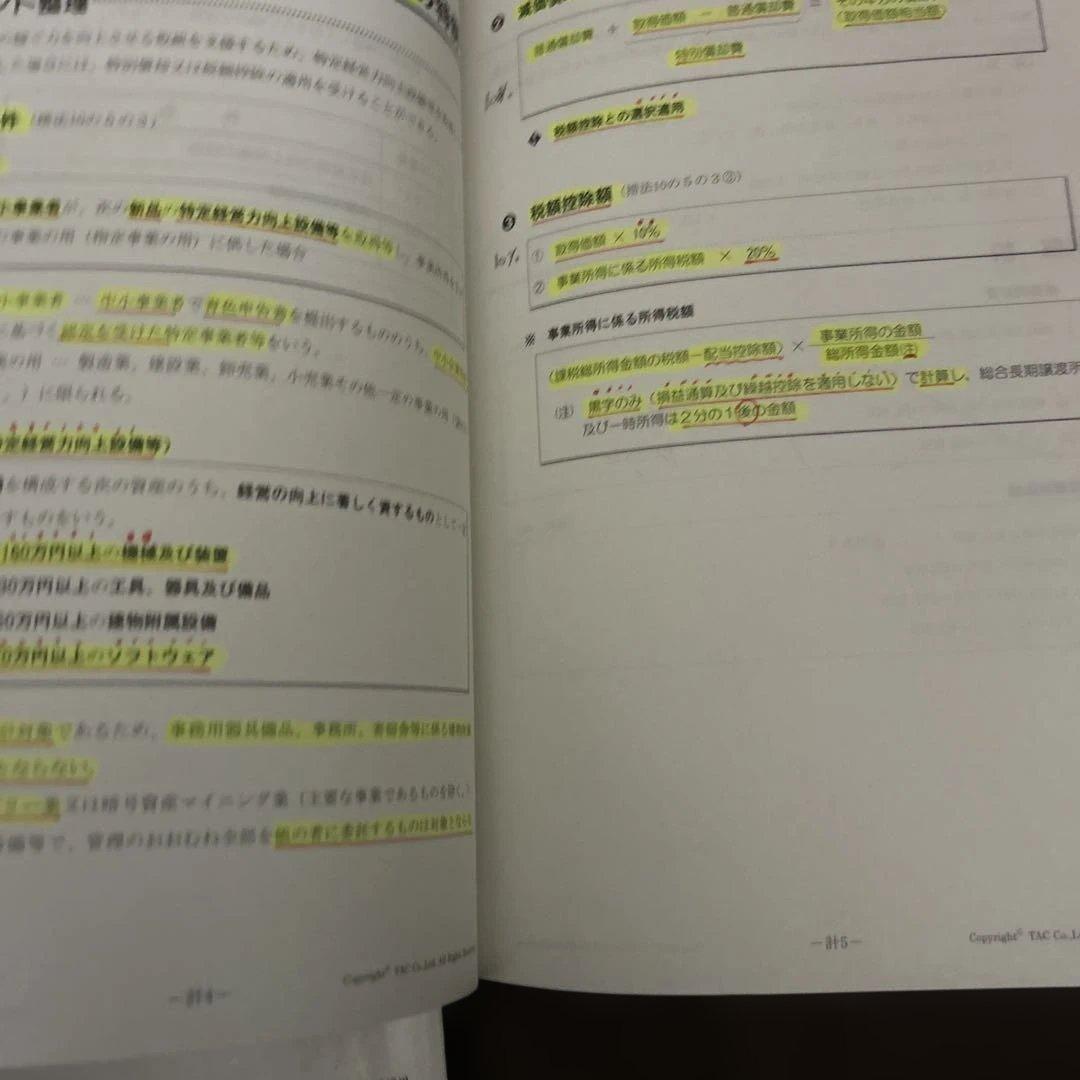 ント整理
件（措法10の5の3）
小事業者が、次の新品の特定経営力向上設備等を取得等し、
の事業の用（指定事業の用）に供した場合
小事業者 … 中小事業者で青色申告書を提出するもののうち、
に基づく認定を受けた特定事業者等をいう。
の用 … 製造業、建設業、卸売業、小売業その他一定の事業の用
）に限られる。
定経営力向上設備等）
を構成する次の資産のうち、経営の向上に著しく資するものとして
すものをいう。
160万円以上の機械及び装置
30万円以上の工具、器具及び備品
60万円以上の建物附属設備
70万円以上のソフトウェア
であるため、事務用器具備品、事務所、寄宿舎等に係る建物附属
とならない。
又は暗号資産マイニング業（主要な事業であるものを除く。）
備等で、管理のおおむね全部を他の者に委託するものは対象となら
Copyright© TAC Co.,Ltd. All Rights
－計4－
❷
普通償却費 ＋ 取得価額 － 普通償却費 ＝
（取得価額相当額）
特別償却費
税額控除との選択適用
❸ 税額控除額（措法10の5の3③）
10%
① 取得価額 × 10%
② 事業所得に係る所得税額 × 20%
※ 事業所得に係る所得税額
（課税総所得金額の税額－配当控除額）× 事業所得の金額
総所得金額(注)
(注) 黒字のみ（損益通算及び繰越控除を適用しない）で計算し、総合長期譲渡所
及び一時所得は２分の１後の金額
－計5－
Copyright© TAC Co.,L